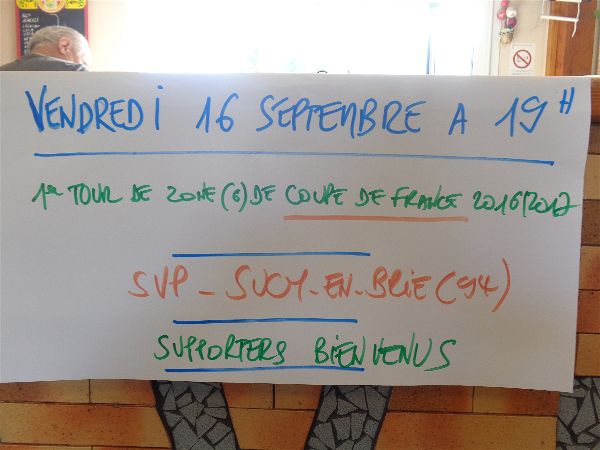 VENDREDI 16 SEPTEMBRE A 19H
1er TOUR DE ZONE (6) DE COUPE DE FRANCE 2016/2017
SVP - SUCY-EN-BRIE (94)
SUPPORTERS BIENVENUS